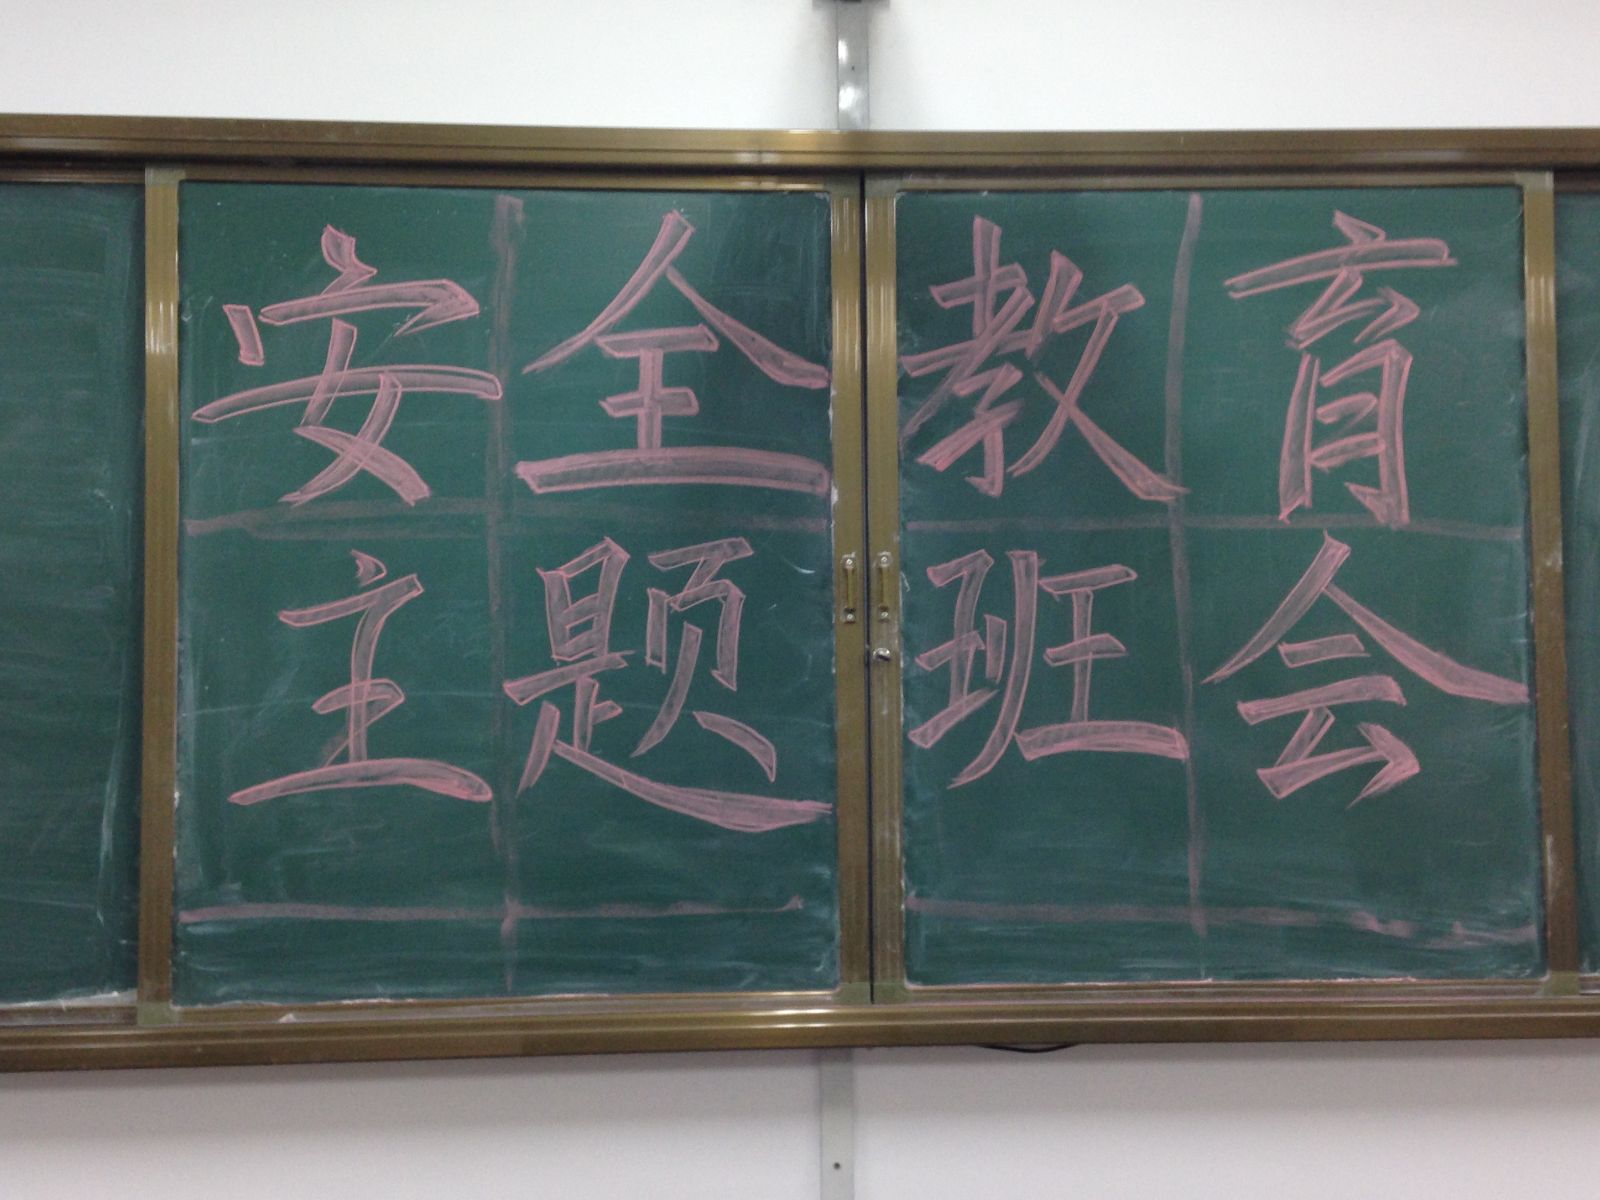 安全教育
主题班会